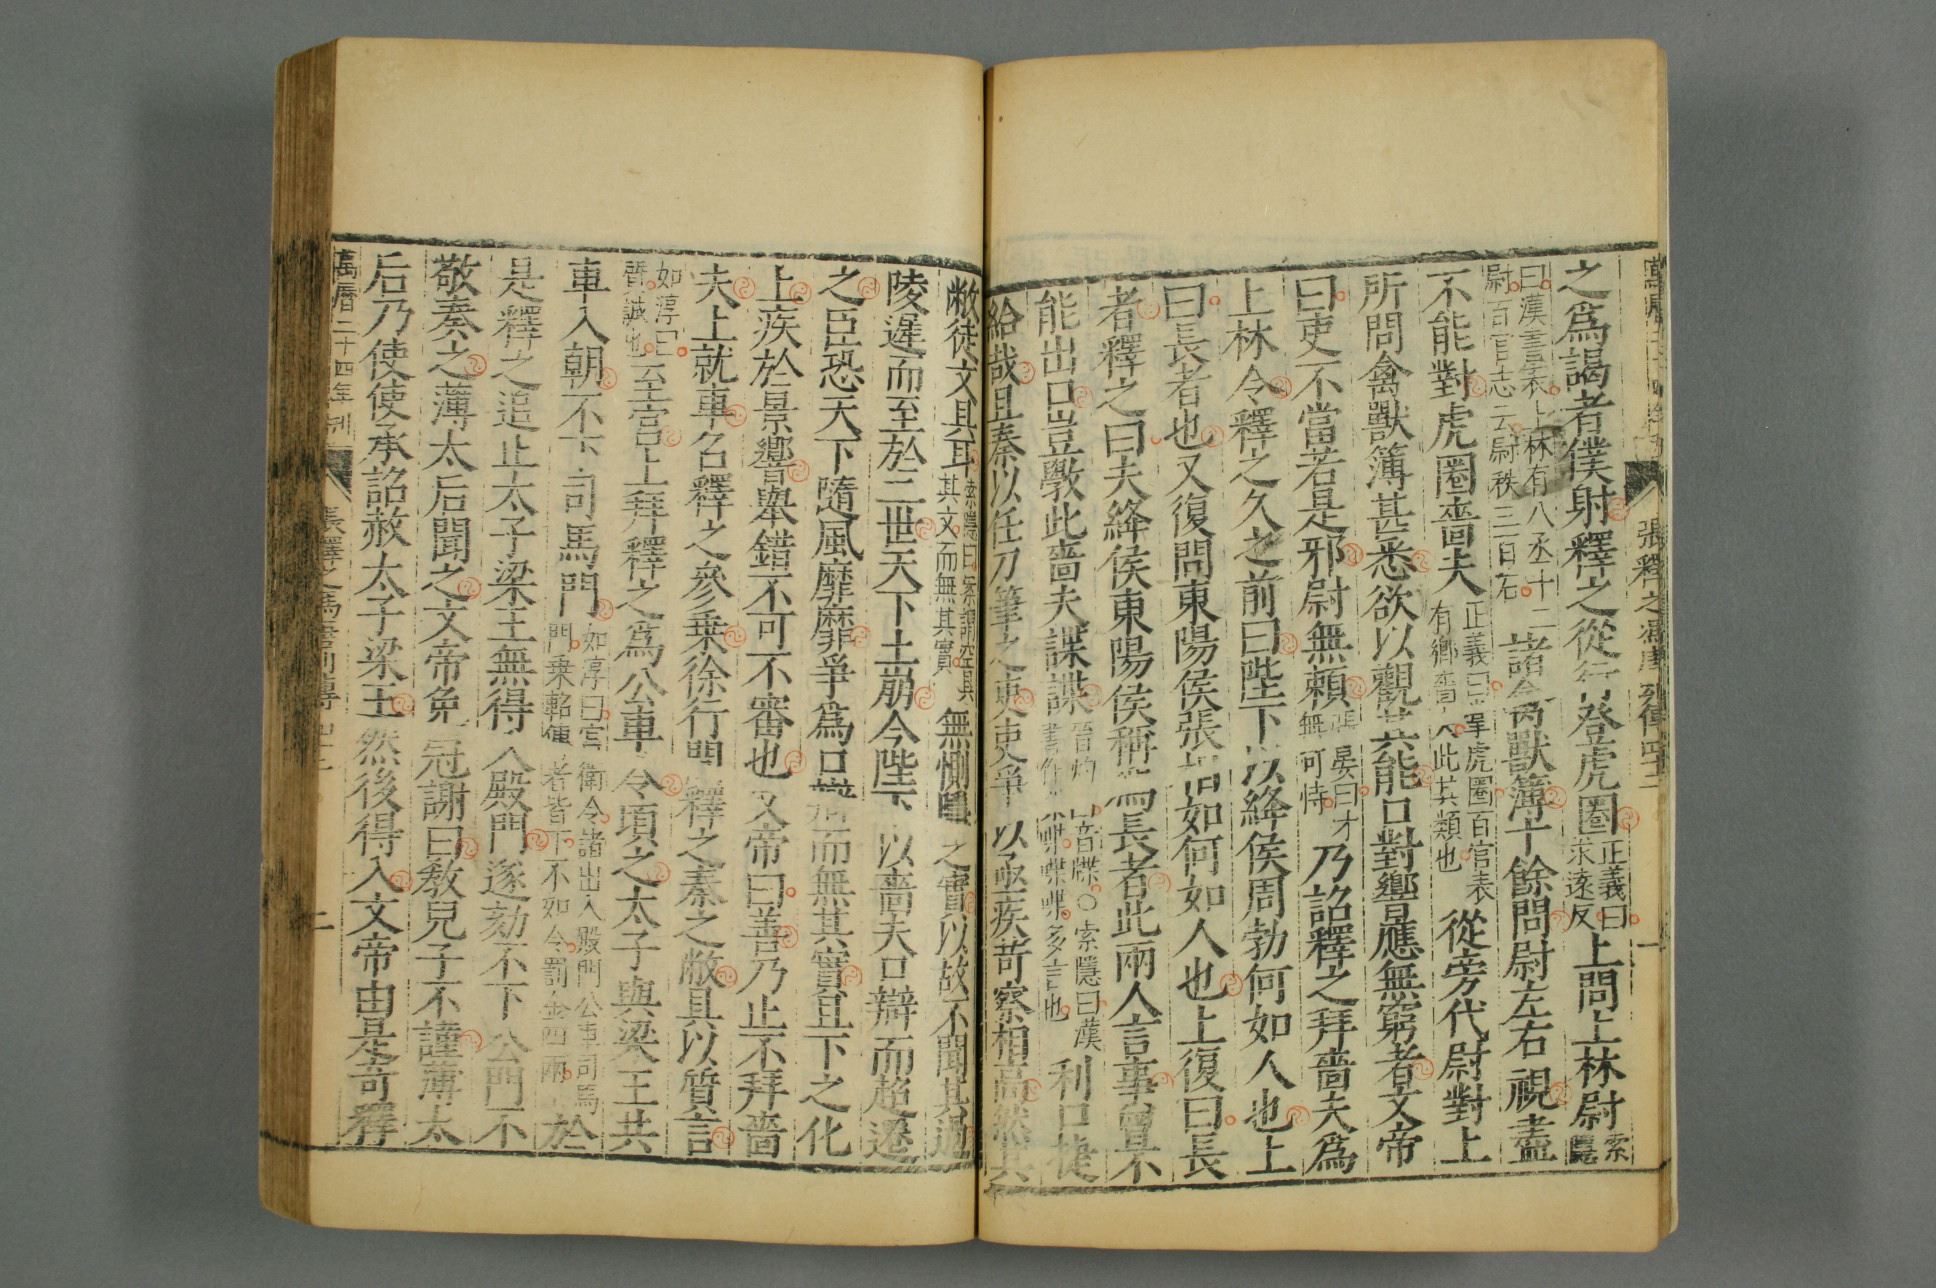 張釋之馮唐列傳四十二
一
之爲謁者僕射釋之從行登虎圈正義曰求遠反上問上林尉索隱
曰漢書表上林有八丞十二尉百官志云尉秩三百石諸禽獸簿十餘問尉左右視盡
不能對虎圈嗇夫正義曰掌虎圈百官表有鄉嗇夫此其類也從旁代尉對上
所問禽獸簿甚悉欲以觀其能口對響應無窮者文帝
曰吏不當若是邪尉無賴張晏曰才無可恃乃詔釋之拜嗇夫爲
上林令釋之久之前曰陛下以絳侯周勃何如人也上
曰長者也又復問東陽侯張相如何如人也上復曰長
者釋之曰夫絳侯東陽侯稱爲長者此兩人言事曾不
能出口豈斅此嗇夫諜諜晉灼曰音牒○索隱曰漢書作喋喋喋多言也利口捷
給哉且秦以任刀筆之吏吏爭以亟疾苛察相高然其
敝徒文具耳索隱曰案謂空具其文而無其實無惻隱之實以故不聞其過
陵遲而至於二世天下土崩今陛下以嗇夫口辯而超遷
之臣恐天下隨風靡靡爭爲口辯而無其實且下之化
上疾於景響舉錯不可不審也文帝曰善乃止不拜嗇
夫上就車召釋之參乗徐行問釋之秦之敝具以質言
如淳曰質誠也至宮上拜釋之爲公車令頃之太子與梁王共
車入朝不下司馬門如淳曰宮衛令諸出入殿門公車司馬門乗軺傳者皆下不如令罰金四兩於
是釋之追止太子梁王無得入殿門遂劾不下公門不
敬奏之薄太后聞之文帝免冠謝曰敎兒子不謹薄太
后乃使使承詔赦太子梁王然後得入文帝由是竒釋
萬曆二十四年刊
張釋之馮唐列傳四十二
二